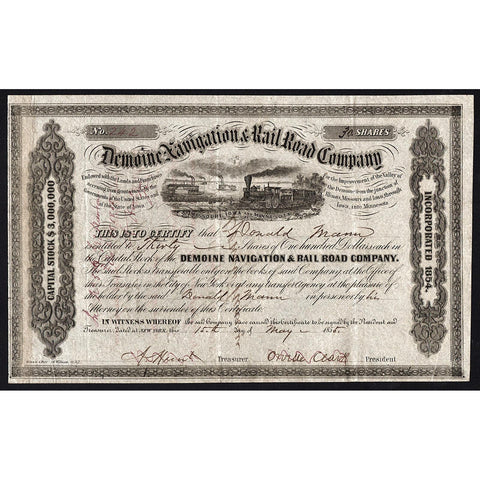 No.
30 SHARES
Demoine Navigation & Rail Road Company
Endowed with the Lands and Franchises
accruing from grants made by the
Governments of the United States and
of the State of Iowa
for the Improvement of the Valley of
the Demoine from the junction of
Illinois, Missouri and Iowa through
Iowa, into Minnesota
CAPITAL STOCK $3,000,000
INCORPORATED 1854.
THIS IS TO CERTIFY that Donald Mann
is entitled to Thirty Shares of One hundred Dollars each in
the Capital Stock of the DEMOINE NAVIGATION & RAIL ROAD COMPANY.
The said Stock is transferable only on the books of said Company at the Office of
their Treasurer in the City of New York or any transfer agency at the pleasure of
the holder by the said Donald Mann in person or by his
Attorney on the surrender of this Certificate.
IN WITNESS WHEREOF the said Company have caused this Certificate to be signed by the President and
Treasurer. Dated at NEW YORK, the 15th day of May 185
Treasurer
Orville Clark President